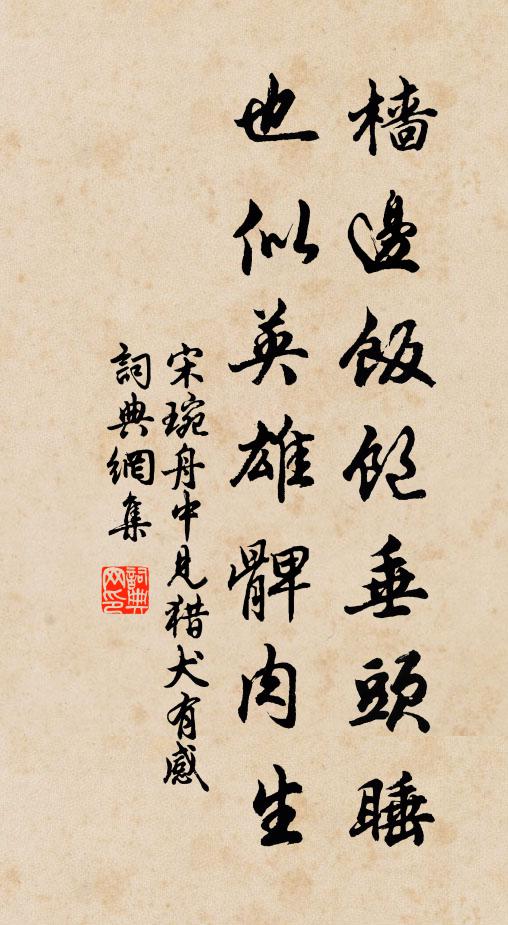 檣邊飯飽垂頭睡
也似英雄髀肉生
宋琬舟中見猎犬有感
詞典網集
詞典网印